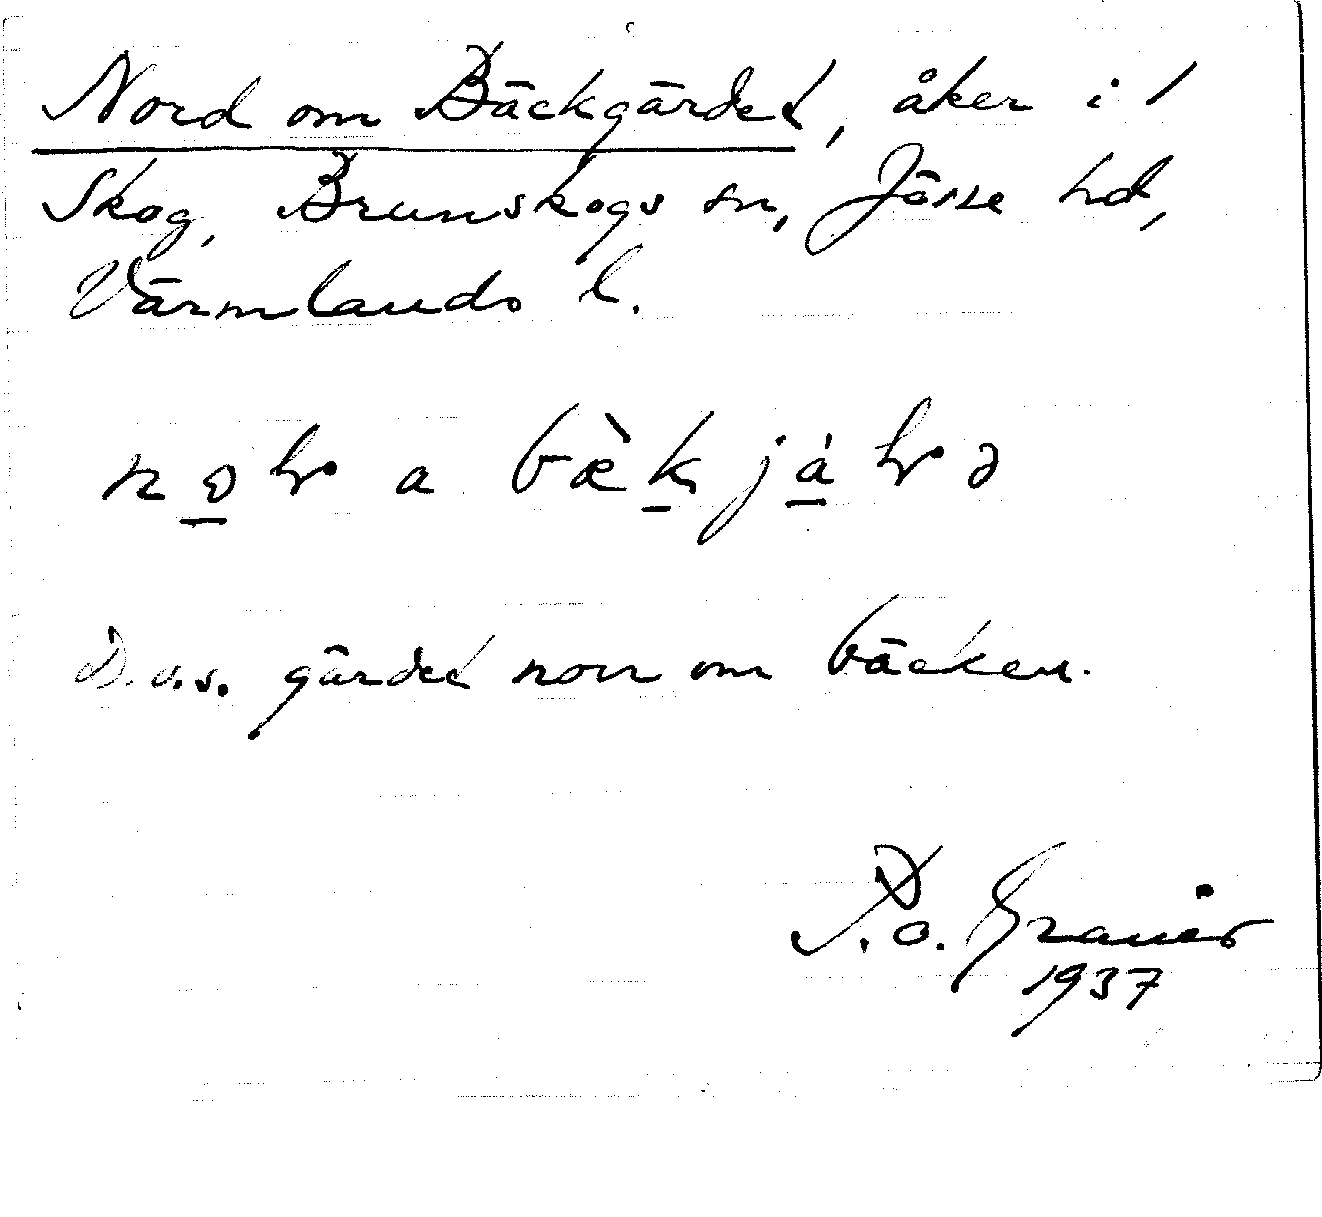 Nord om Bäckgärdet, åker i 1
Skog, Brunskogs sn, Jösse hd,
Värmlands l.
D.v.s. gärdet norr om bäcken.
P.O. Granér
1937